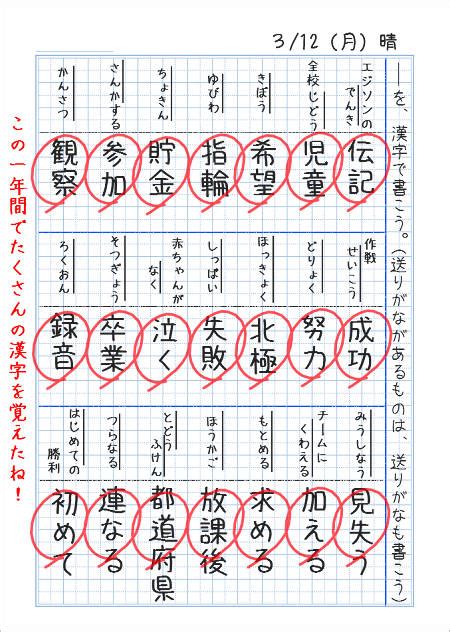 3/12（月）晴
――を、漢字で書こう。（送りがながあるものは、送りがなも書こう）
エジソンのでんき
伝記
全校じどう
児童
きぼう
希望
ゆびわ
指輪
ちょきん
貯金
さんかする
参加
かんさつ
観察
作戦せいこう
成功
どりょく
努力
ほっきょく
北極
しっぱい
失敗
赤ちゃんがなく
泣く
そつぎょう
卒業
ろくおん
録音
みうしなう
見失う
チームにくわえる
加える
もとめる
求める
ほうかご
放課後
とどうふけん
都道府県
つらなる
連なる
はじめての勝利
初めて
この一年間でたくさんの漢字を覚えたね！